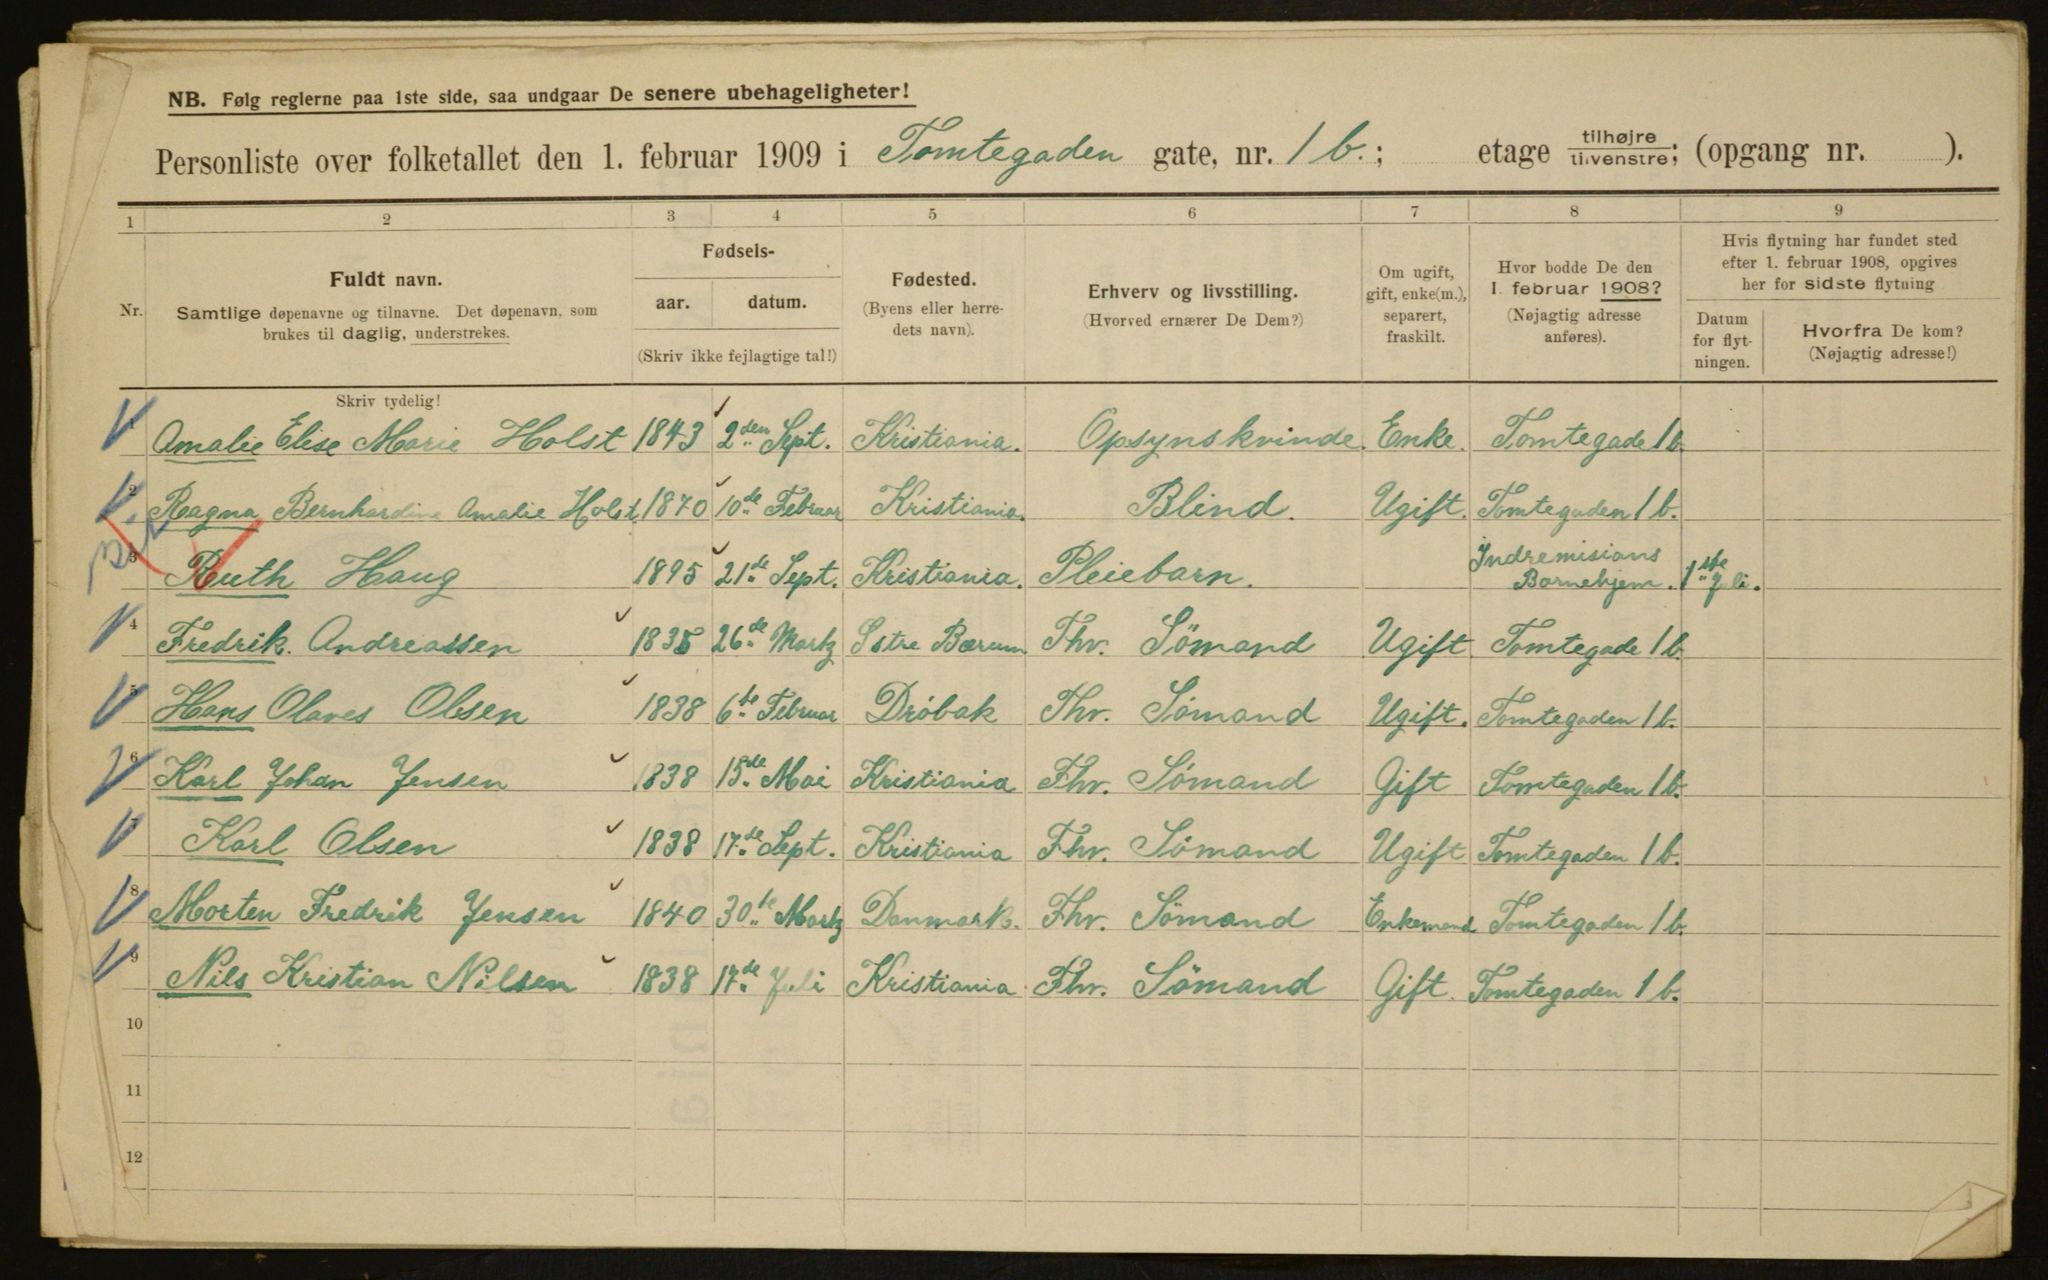 NB. Følg reglerne paa 1ste side, saa undgaar De senere ubehageligheter!
Personliste over folketallet den 1. februar 1909 i Tomtegaden gate, nr. 1 b.; etage tilhøjre / tilvenstre; (opgang nr. ).
1 2 3 4 5 6 7 8 9
Nr.
Fuldt navn.
Samtlige døpenavne og tilnavne. Det døpenavn, som
brukes til daglig, understrekes.
Fødsels-
aar. datum.
(Skriv ikke fejlagtige tal!)
Fødested.
(Byens eller herre-
dets navn).
Erhverv og livsstilling.
(Hvorved ernærer De Dem?)
Om ugift,
gift, enke(m.),
separert,
fraskilt.
Hvor bodde De den
1. februar 1908?
(Nøjagtig adresse
anføres).
Hvis flytning har fundet sted
efter 1. februar 1908, opgives
her for sidste flytning
Datum
for flyt-
ningen.
Hvorfra De kom?
(Nøjagtig adresse!)
Skriv tydelig!
Amalie Elise Marie Holst 1843 2den Sept. Kristiania. Opsynskvinde. Enke. Tomtegade 1 b.
2 Ragna Bernhardine Amalie Holst. 1870 10de Februar Kristiania. Blind. Ugift. Tomtegaden 1 b.
3 Ruth Haug 1895 21de Sept. Kristiania. Pleiebarn. Indremisions
Barnehjem. 1ste Juli.
4 Fredrik. Andreassen 1835 26de Martz Østre Bærum Fhv. Sömand Ugift Tomtegade 1 b.
5 Hans Olaves Olsen 1838 6te Februar Dröbak Fhv. Sömand Ugift. Tomtegaden 1 b.
6 Karl Johan Jensen 1838 15de Mai Kristiania Fhv. Sömand Gift Tomtegaden 1 b.
7 Karl Olsen 1838 17de Sept. Kristiania Fhv. Sömand Ugift Tomtegaden 1 b.
8 Morten Fredrik Jensen 1840 30te Martz Danmark. Fhv. Sömand Enkemand Tomtegaden 1 b.
9 Nils Kristian Nilsen 1838 17de Juli Kristiania. Fhv. Sömand Gift. Tomtegaden 1 b.
10
11
12